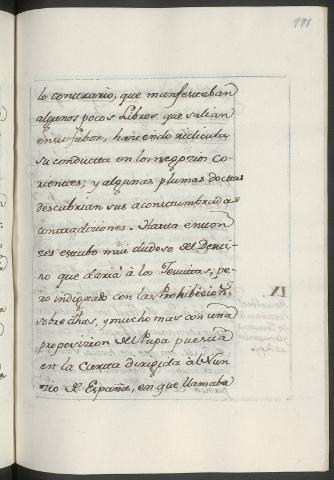 191
lo contrario, que manifestaban
algunos pocos Libros que salian
en su fabor, haciendo ridicula
su conducta en los negozios co-
rrientes; y algunas plumas doctas
descubrian sus acostumbradas
contradiciones. Hasta enton-
zes estubo mui dudoso el Desti-
no que daria à los Jesuitas; pe-
ro indignado con las Prohibicion.s
sobre dhas, y mucho mas con una
proposizion del Papa puesta
en la Carta dirigida àl Nun-
zio de España, en que llamaba
IX.